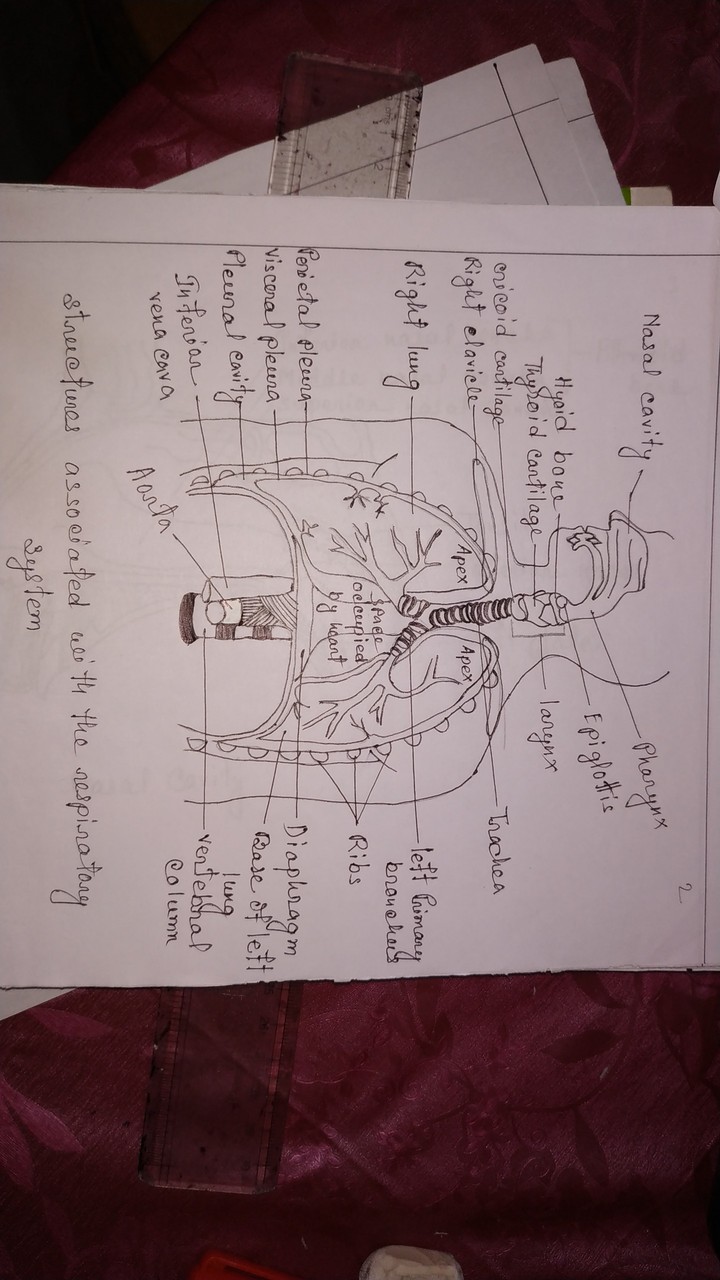 2
Nasal cavity
Hyoid bone
Thyroid cartilage
cricoid cartilage
Right clavicle
Right lung
Perietal pleura
visceral pleura
Pleural cavity
Inferior
vena cava
Aorta
Pharynx
Epiglottis
larynx
Trachea
left Primary
bronchus
Ribs
Diaphragm
Base of left
lung
vertebral
column
Apex
Apex
space
occupied
by heart
structures associated with the respiratory
system